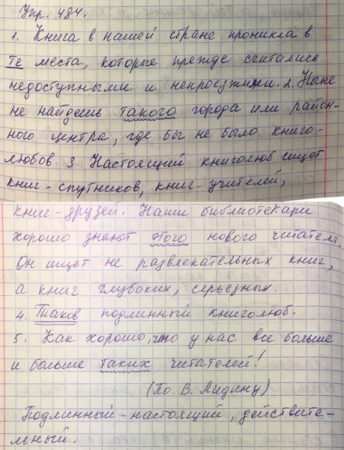 Упр. 484.
1. Книга в нашей стране проникла в
те места, которые прежде считались
недоступными и непроезжими. 2. Ныне
не найдешь такого города или район-
ного центра, где бы не было книго-
любов. 3. Настоящий книголюб ищет
книг-спутников, книг-учителей,
книг-друзей. Наши библиотекари
хорошо знают этого нового читателя.
Он ищет не развлекательных книг,
а книг глубоких, серьезных.
4. Таков подлинный книголюб.
5. Как хорошо, что у нас все больше
и больше таких читателей!
(По В. Лидину)
Подлинный - настоящий, действите-
льный.